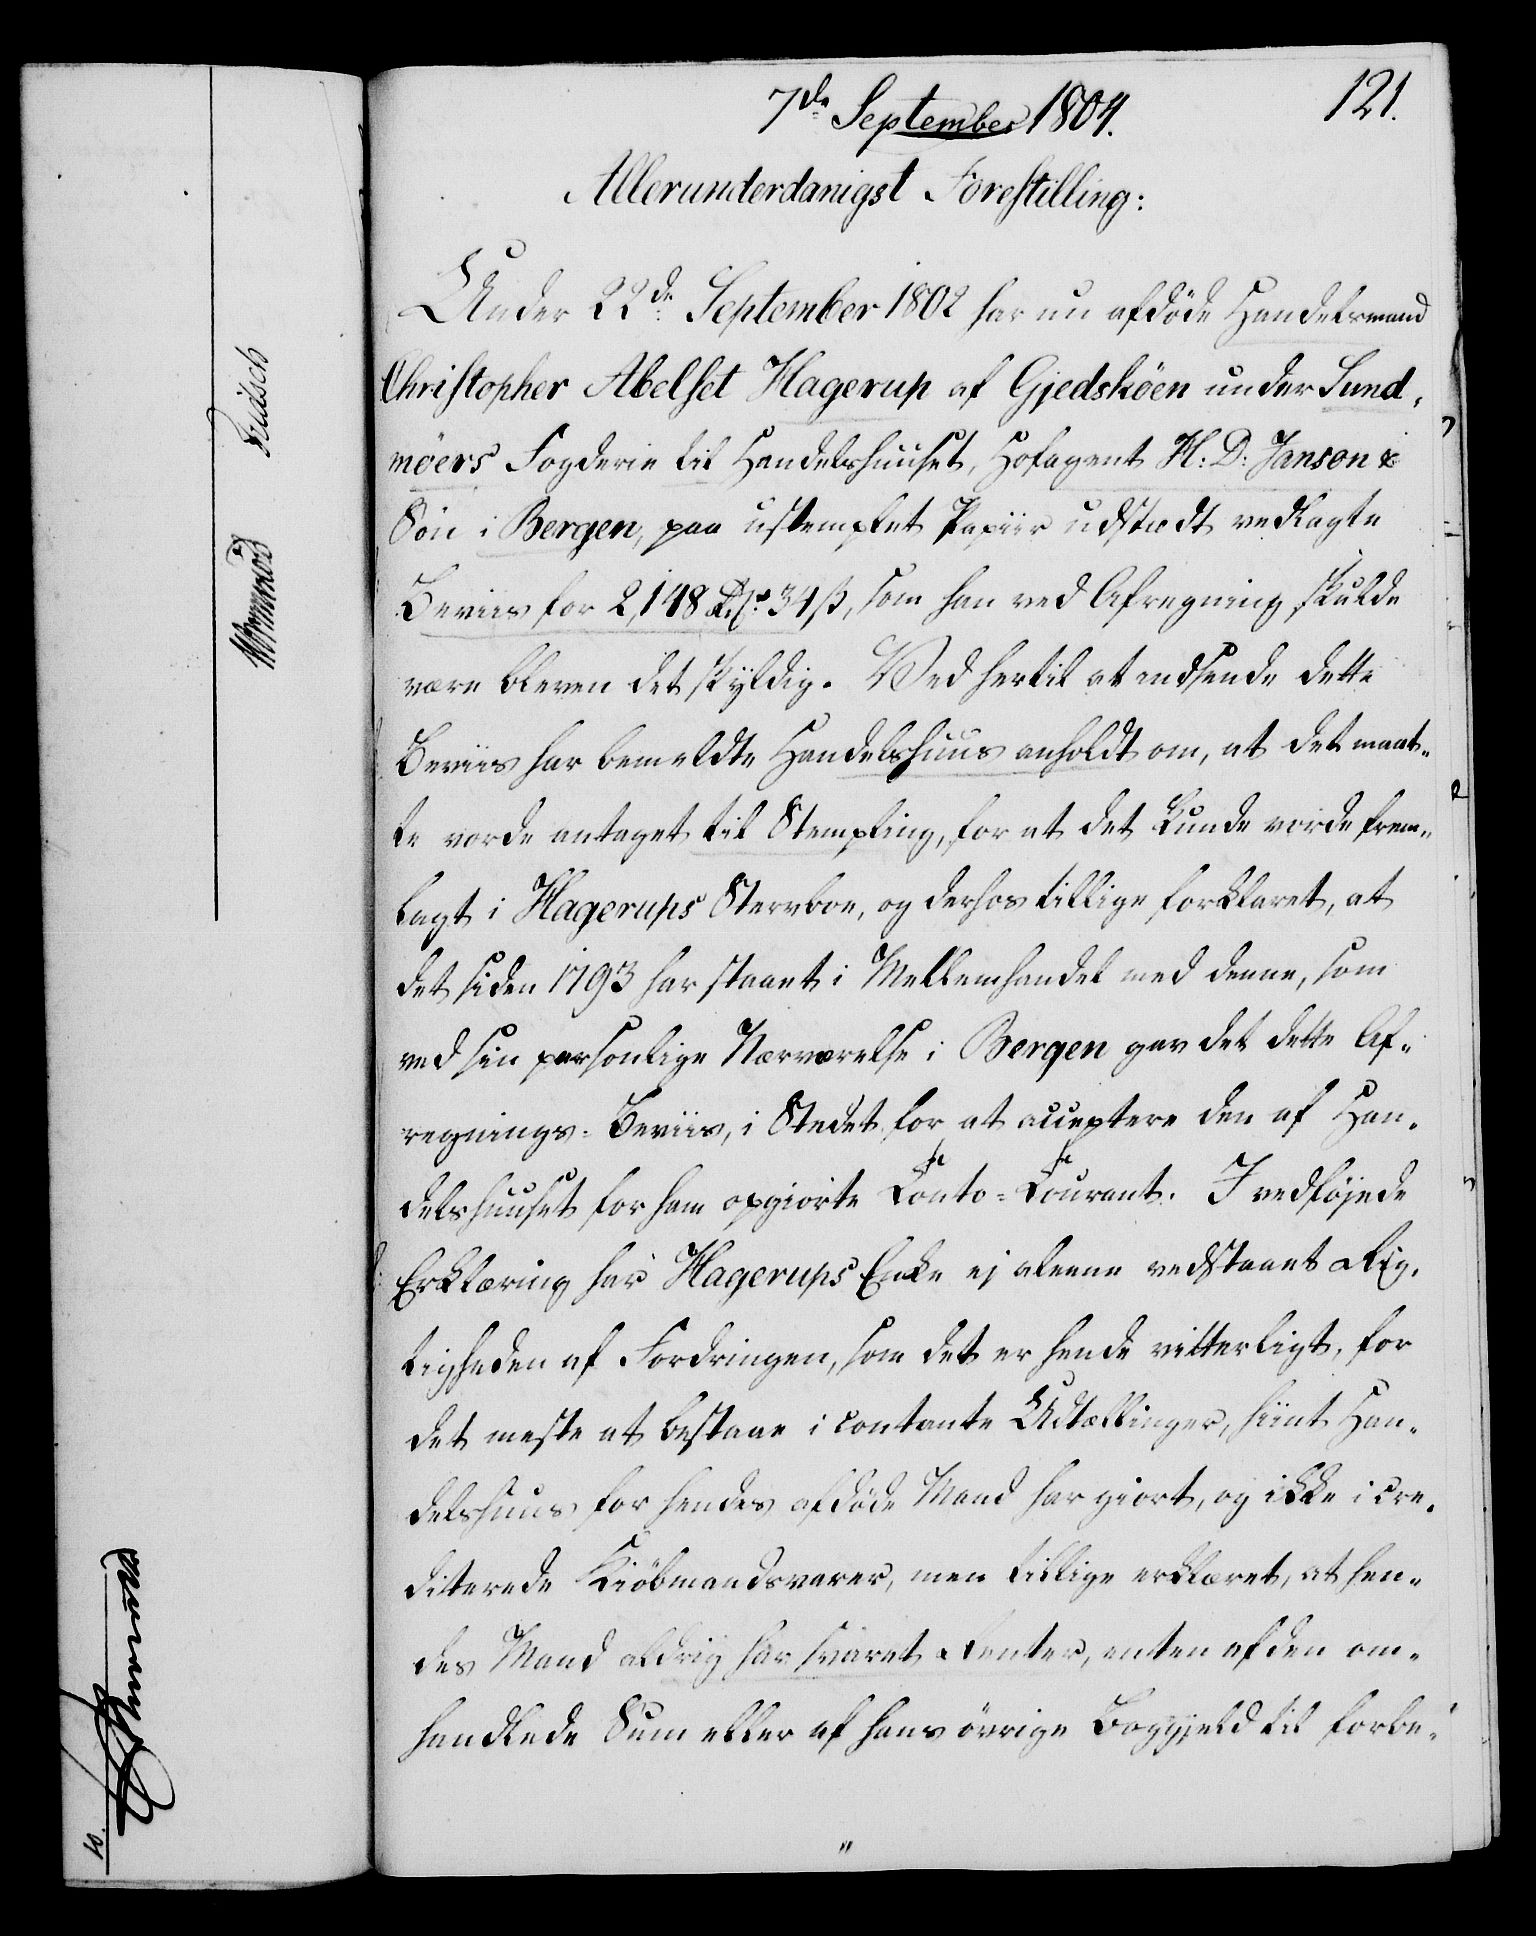 121.
7de September 1804.
Allerunderdanigst Forestilling:
Under 22de September 1802 har nu afdöde Handelsmand
Christopher Abelset Hagerup af Gjedsköen under Sund-
möers Fogderie til Handelshuuset, Hofagent H: D: Janson &
Sön i Bergen, paa ustemplet Papiir udstædt vedlagte
Beviis for 2,148 Rd. 34 ß, som han ved Afregning skulde
være bleven det skyldig. Ved hertil at indsende dette
Beviis har bemeldte Handelshuus anholdt om, at det maat-
te vorde antaget til Stempling, for at det kunde vorde frem-
lagt i Hagerups Stervboe, og derhos tillige forklaret, at
det siden 1793 har staaet i Mellemhandel med denne, som
ved sin personlige Nærværelse i Bergen gav det dette Af-
regnings-Beviis, i Stedet for at acceptere den af Han-
delshuuset for ham opgiorte Conto-Courant. I vedföjede
Erklæring har Hagerups Enke ej aleene vedstaaet Rig-
tigheden af Fordringen, som det er hende vitterligt, for
det meste at bestaae i contante Udtællinger, hiint Han-
delshuus for hendes afdöde Mand har giort, og ikke i cre-
diterede Kiöbmandsvarer, men tillige erklæret, at hen-
des Mand aldrig har svaret Renter, enten af den om-
handlede Sum eller af hans övrige Boggjeld til forbe-
"